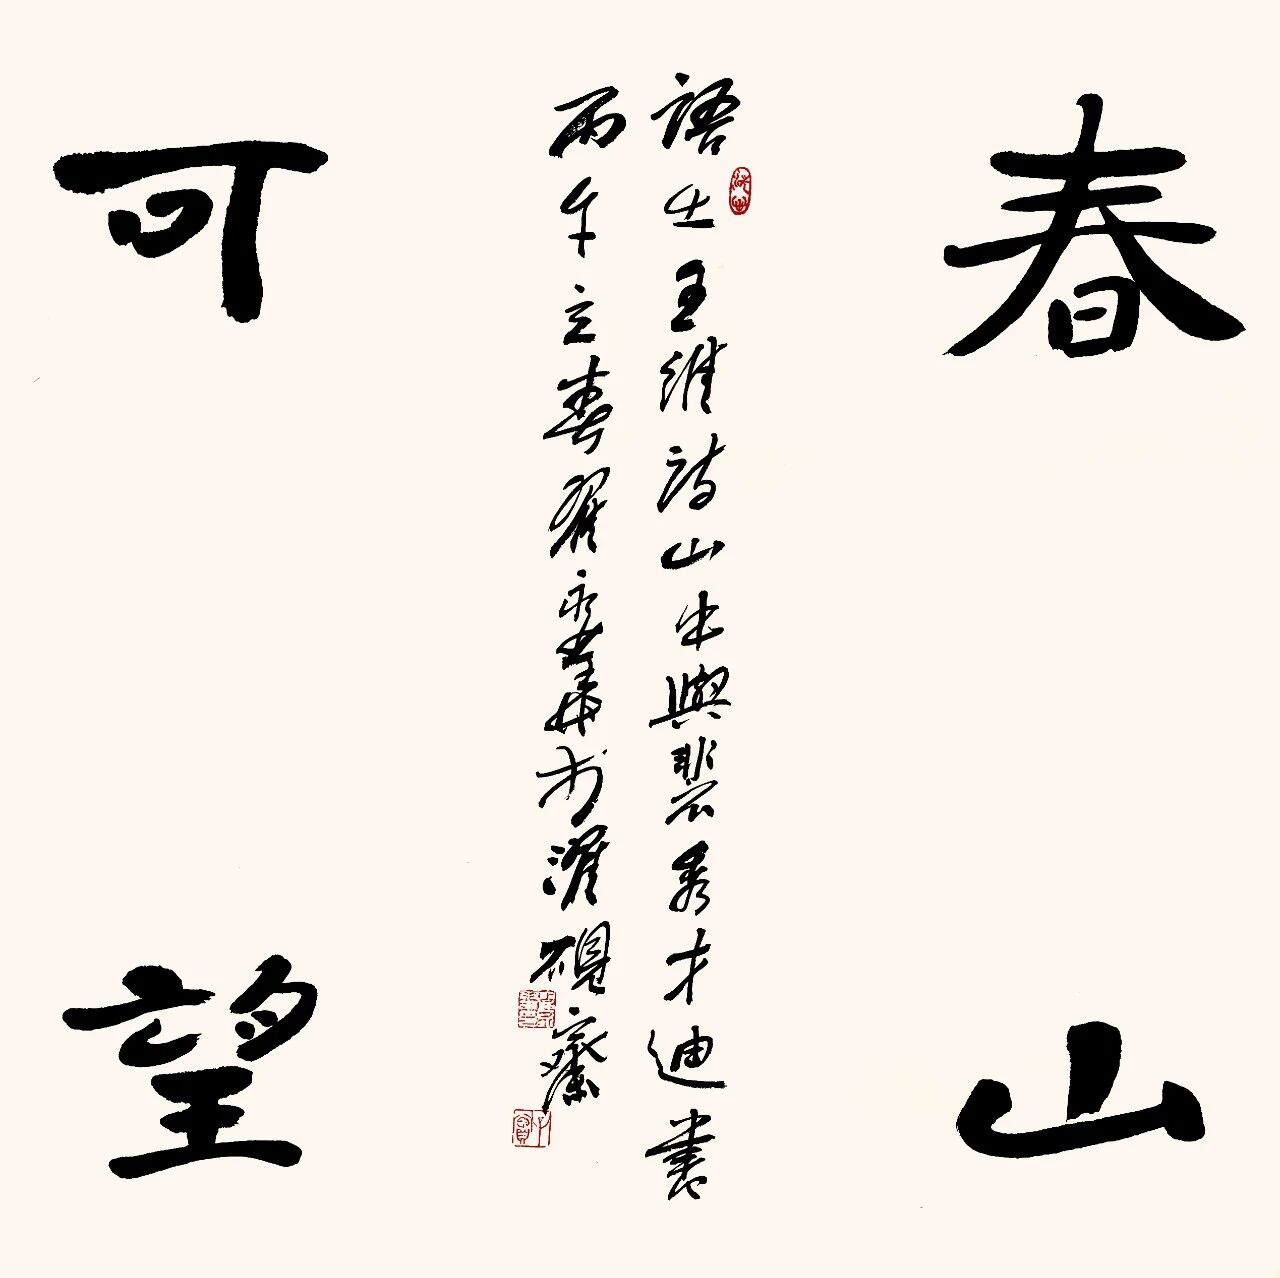 春山
可望
語出王維詩山中與裴秀才迪書
丙午立春翟永華於濯硯齋